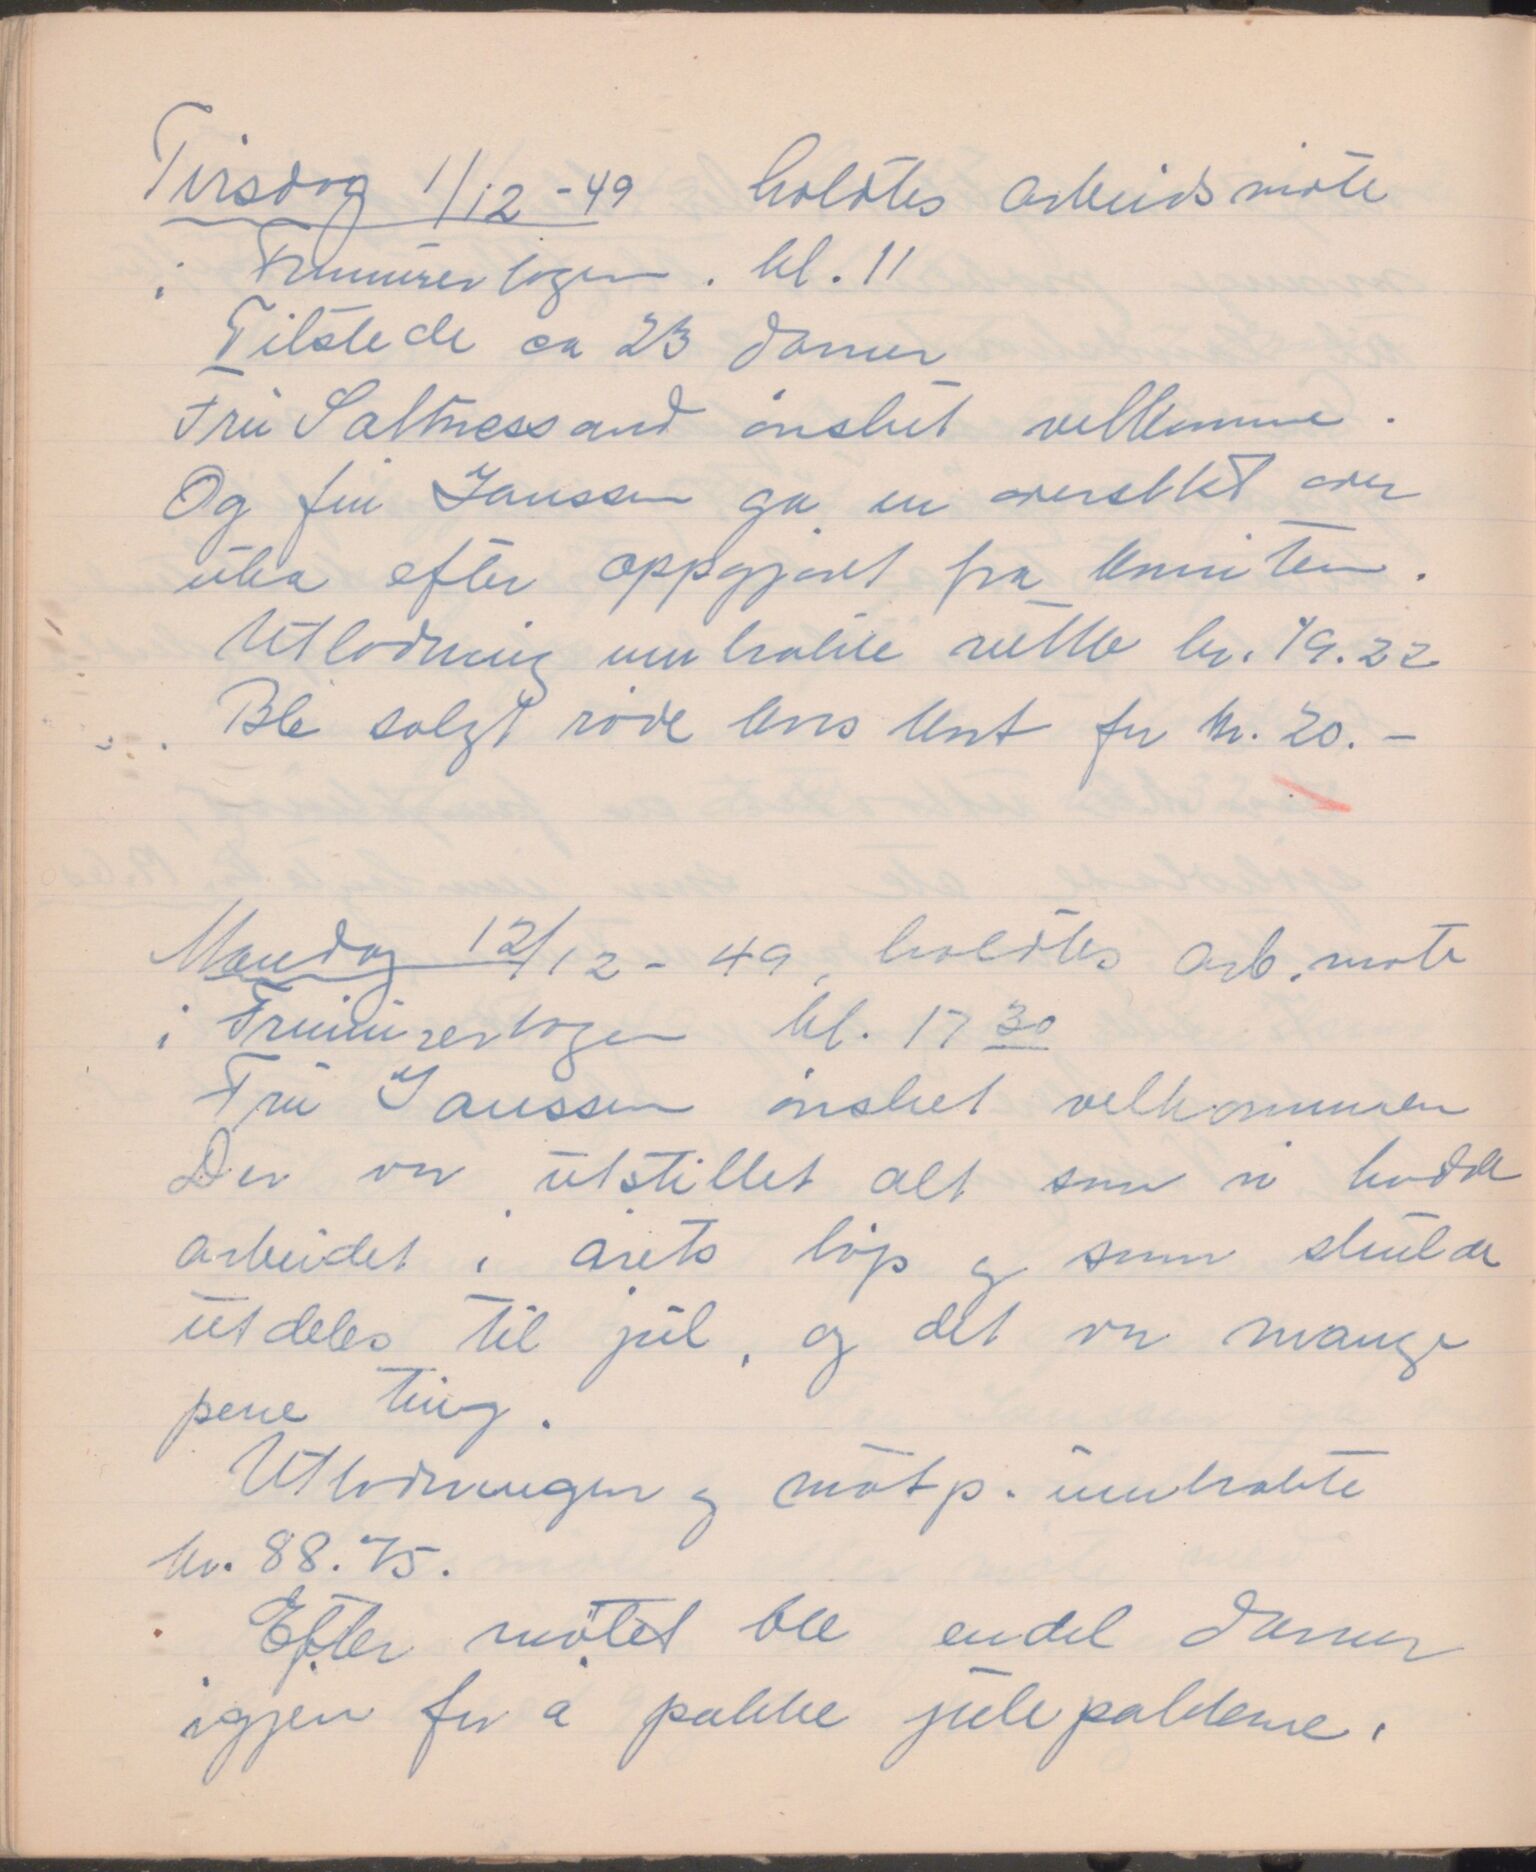 Tirsdag 1/12-49 holdtes arbeidsmöte
i Frimurerlogen. kl. 11
Tilstede ca 23 damer
Fru Saltnessand önsket velkomme.
Og fru Janssen ga en oversikt over
uka efter oppgjöret fra komiteen.
Utlodning innbrakte netto kr. 19.22
Ble solgt röde kors kort for kr. 20.-
Mandag 12/12-49, holdtes arb. möte
i Frimurerlogen kl. 17 30
Fru Janssen önsket velkommen
Der var utstillet alt som vi hadde
arbeidet i årets löp og som skulde
utdeles til jul, og det var mange
pene ting.
Utlodningen og mötp. innbrakte
kr. 88.75.
Efter mötet ble endel damer
igjen for å pakke julepakkene.